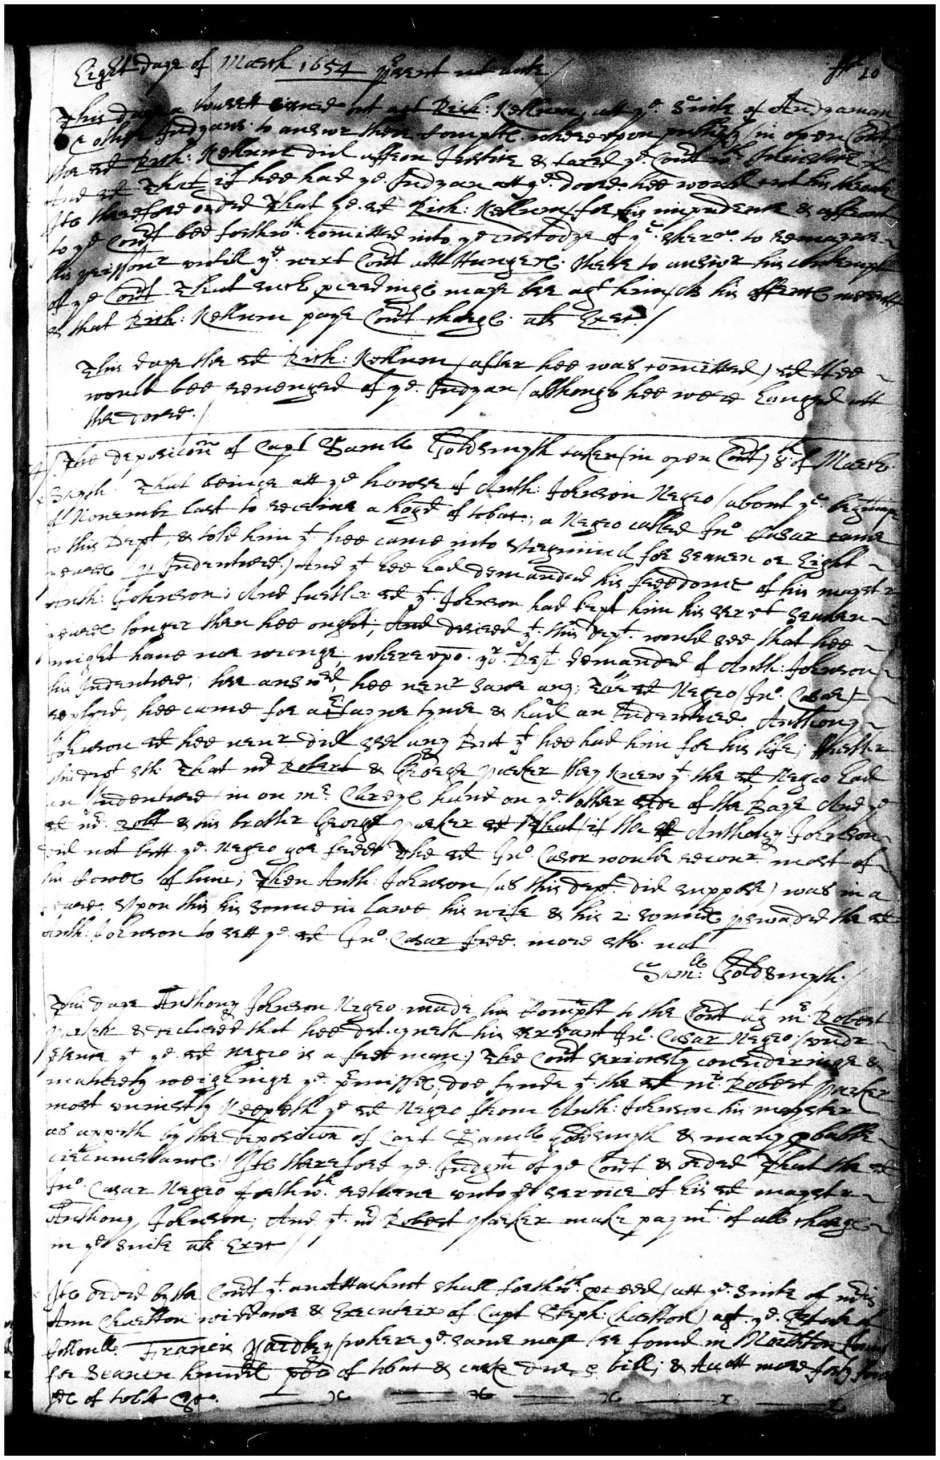 Eight daye of March 1654 psent ut ante /
fo: 10
This daye a
& other Indyans to answr their Complt whereupon in open Court
the sd Rich: Kellum did affron Justice & taxed ye Court wth
And sd That if hee had ye Indyan att ye doore hee would cut his throate
Its therefore ordrd That ye sd Rich: Kellum /for his impudence & affront
to ye Cort bee forthwth comitted into ye custodye of ye sherr: to remayne
his prissonr untill ye next Court att Hungers: there to answr his contempt
of ye Court That such pceedings maye bee agt him /As his offence
& that Rich: Kellum paye Court charges als Exec. /
This daye the sd Rich: Kellum /after hee was comitted) sd Hee
would bee revenged of ye Indyan /although hee were hanged att
the doore. /
The deposicon of Capt Samll Goldsmyth taken /in open Court) 8th of March
Sayth That beinge att ye howse of Anth: Johnson Negro /about ye beginninge
of Novembr last to receive a hogd of tobac; a Negro called Jno Casar came
to this Dept, & told him yt hee came into Virginia for seaven or Eight
yeares p Indenture; And yt hee had demanded his freedome of his maystr
Anth: Johnson; And further sd yt Johnson had kept him his servt seaven
yeares longer then hee ought, And desired yt this dept would see that hee
might have noe wronge, whereupo yr Dept demanded of Anth: Johnson
his Indenture; hee answrd, hee nevr sawe any; The sd Negro /Jno Casar)
replyed, hee came for a certayne tyme & had an Indenture Anthony
Johnson sd hee nevr did see any But yt hee had him for his life; Further
this dept sth That mr Robert & George Parker they knew yt the sd Negro had
an Indenture in on Mr Carye hund on ye other side of the Baye And ye
sd mr Robt & his brother George Parker sd That /if the sd Anthony Johnson
did not lett ye Negro goe free The sd Jno Casor would recovr most of
his Cowes of him; Then Anth: Johnson /as this dept did suppose) was in a
feare. Upon this his sonne in lawe, his wife & his 2: sonnes pswaded the sd
Anth: Johnson to sett ye sd Jno Casar free. more sth not
Samll: Goldsmyth. /
This daye Anthony Johnson Negro made his Complt to the Court agt mr Robert
Parker & declared that hee detayneth his servant Jno Casar Negro /undr
ptence yt ye sd Negro is a free man) The Court seriously consideringe &
maturely weighinge ye pmisses, doe fynde yt the sd mr Robert Parker
most unjustly Keepeth ye sd Negro from Anth: Johnson his mayster
as appth by the deposition of Capt Samll Goldsmyth & many pbable
circumstances. Its therefore ye Judgmt of ye Court & ordrd That the sd
Jno Casar Negro forthwth returne unto ye service of his sd maystr
Anthony Johnson; And yt mr Robert Parker make paymt of all charges
in ye suite als Exec /
Its ordrd by the Court yt an Attachmt shall forthwth pceed /att ye suite of mrs
Ann widdowe & Executrix of Capt Steph: agt ye Estate of
Collonll Francis Yardley /where ye same may be found in
for seaven hundrd of tobac & due p bill; & Alsoe more
of tobac &c.